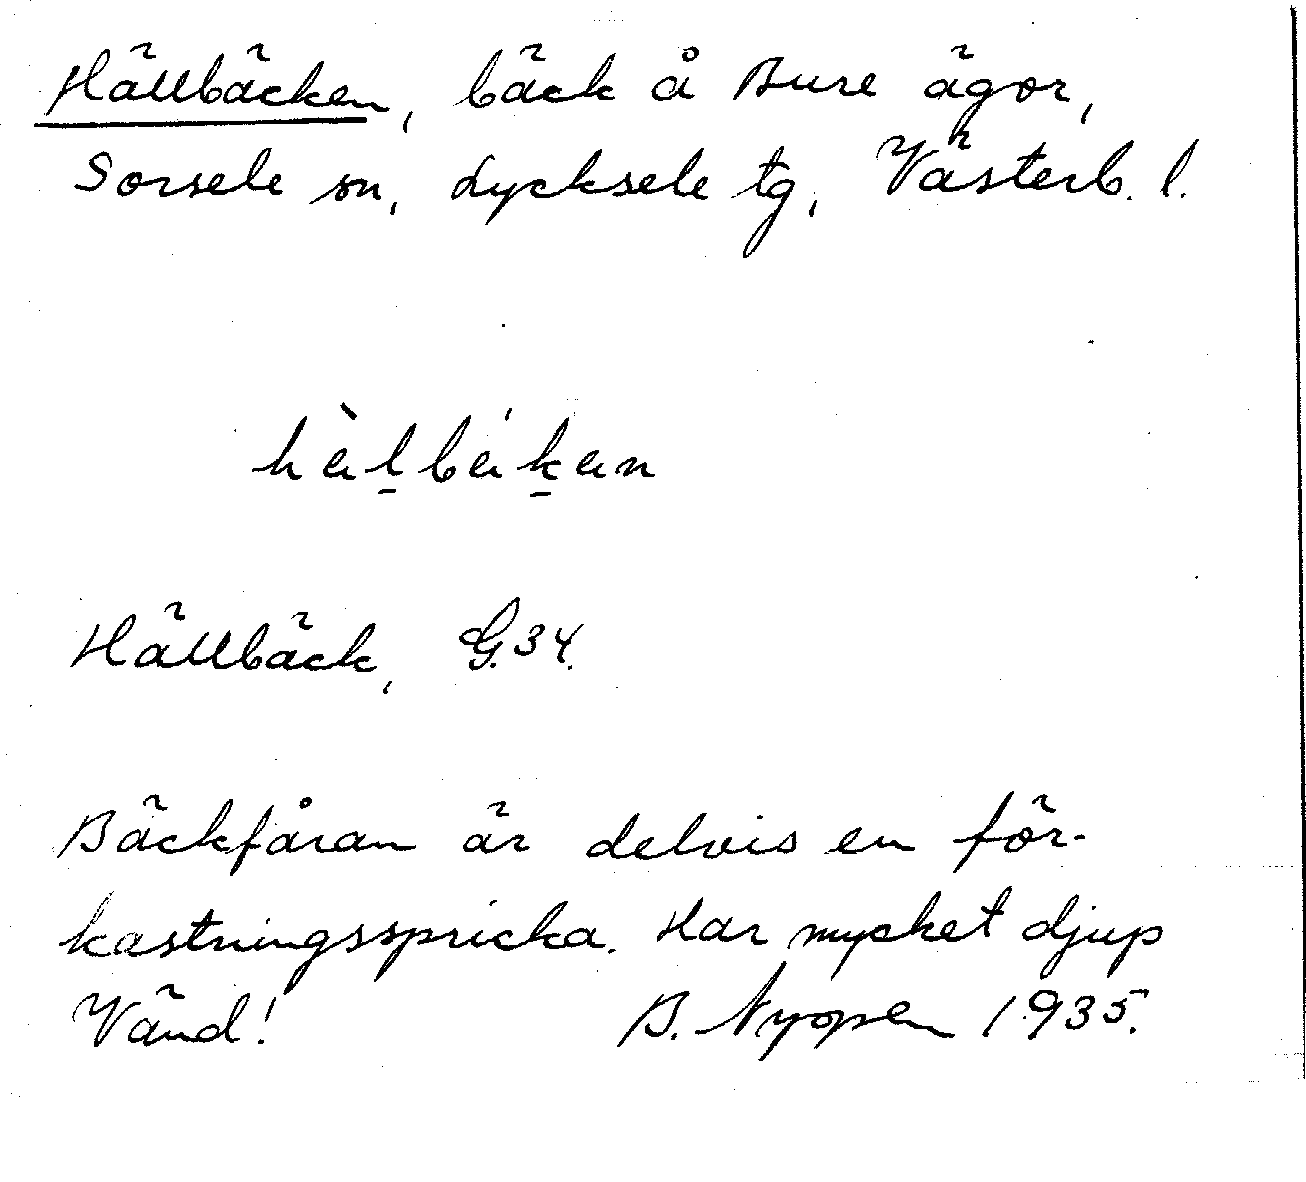 Hällbäcken, bäck å Bure ägor,
Sorsele sn, Lycksele tg, Västerb. l.
hàl̠bák̠an
Hällbäck, G.34.
Bäckfåran är delvis en för-
kastningsspricka. Har mycket djup
Vänd! B. Nyopen 1935.